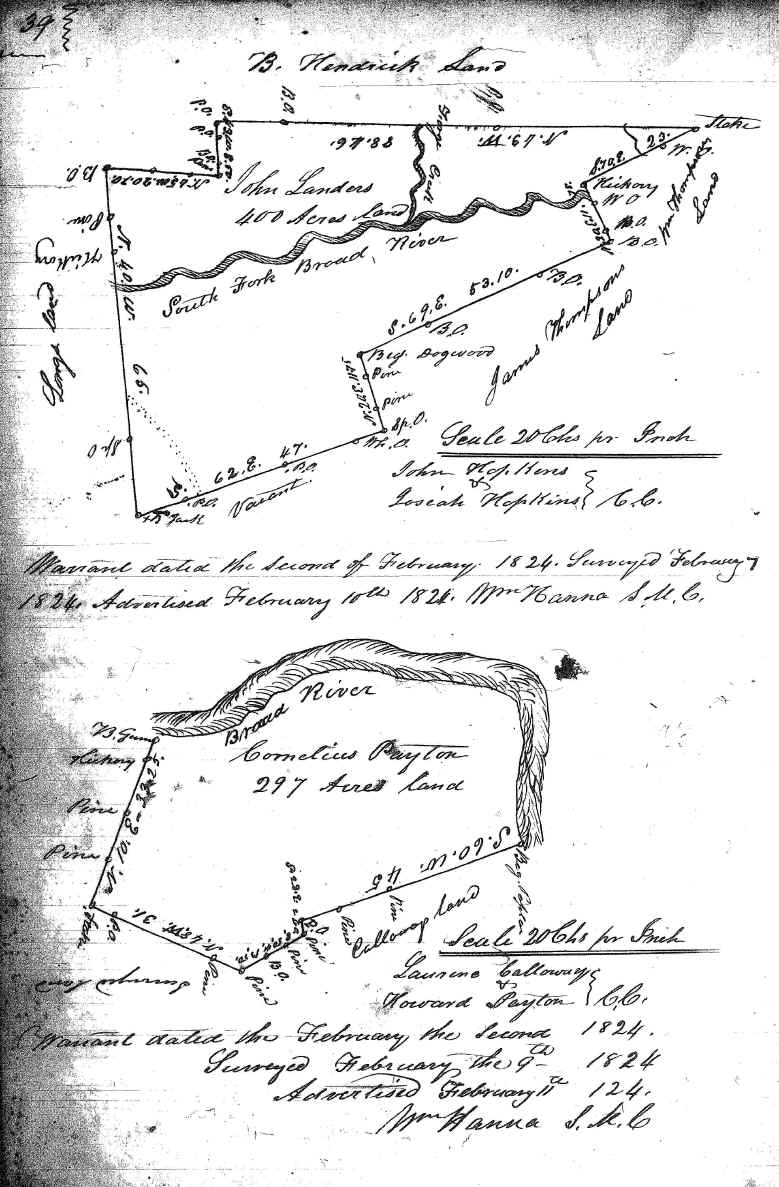 39
B. Hendrick Land
Stake
B.O.
N. 49. W.
88.46.
23.
S. 70. E.
W.O.
Wm Thompsons
Land
B.O.
N. 45. W. 20.70.
John Landers
400 Acres Land
Hickory
W O
B.O.
B.O.
Pine
Hickory
N. 40. W.
65
South Fork Broad River
S. 69. E.
53.10.
B.O.
B.O.
James Thompsons
Land
Beg. Dogwood
Pine
Pine
Sp. O.
Sp. O
62. E.
47.
B.O.
Vacant.
B.O.
Scale 20 Chs pr Inch
John Hopkins
&
Josiah Hopkins } C.C.
Warrant dated the second of February. 1824. Surveyed February
1824. Advertised February 10th 1824. Wm Hanna S.M.C.
Broad River
B. Gum
Hickory
Cornelius Payton
297 Acres land
Pine
Pine
S. 60. W.
45
Pine
Pine
Calloway land
Stake
P.O.
N. 48. W. 31.
Pine
Pine
B.O.
Pine
P.O.
Pine
Scale 20 Chs pr Inch
Calloway
&
Howard Payton } C.C.
Warrant dated the February the Second 1824.
Surveyed February the 9th 1824
Advertised February 11th 124.
Wm Hanna S.M.C